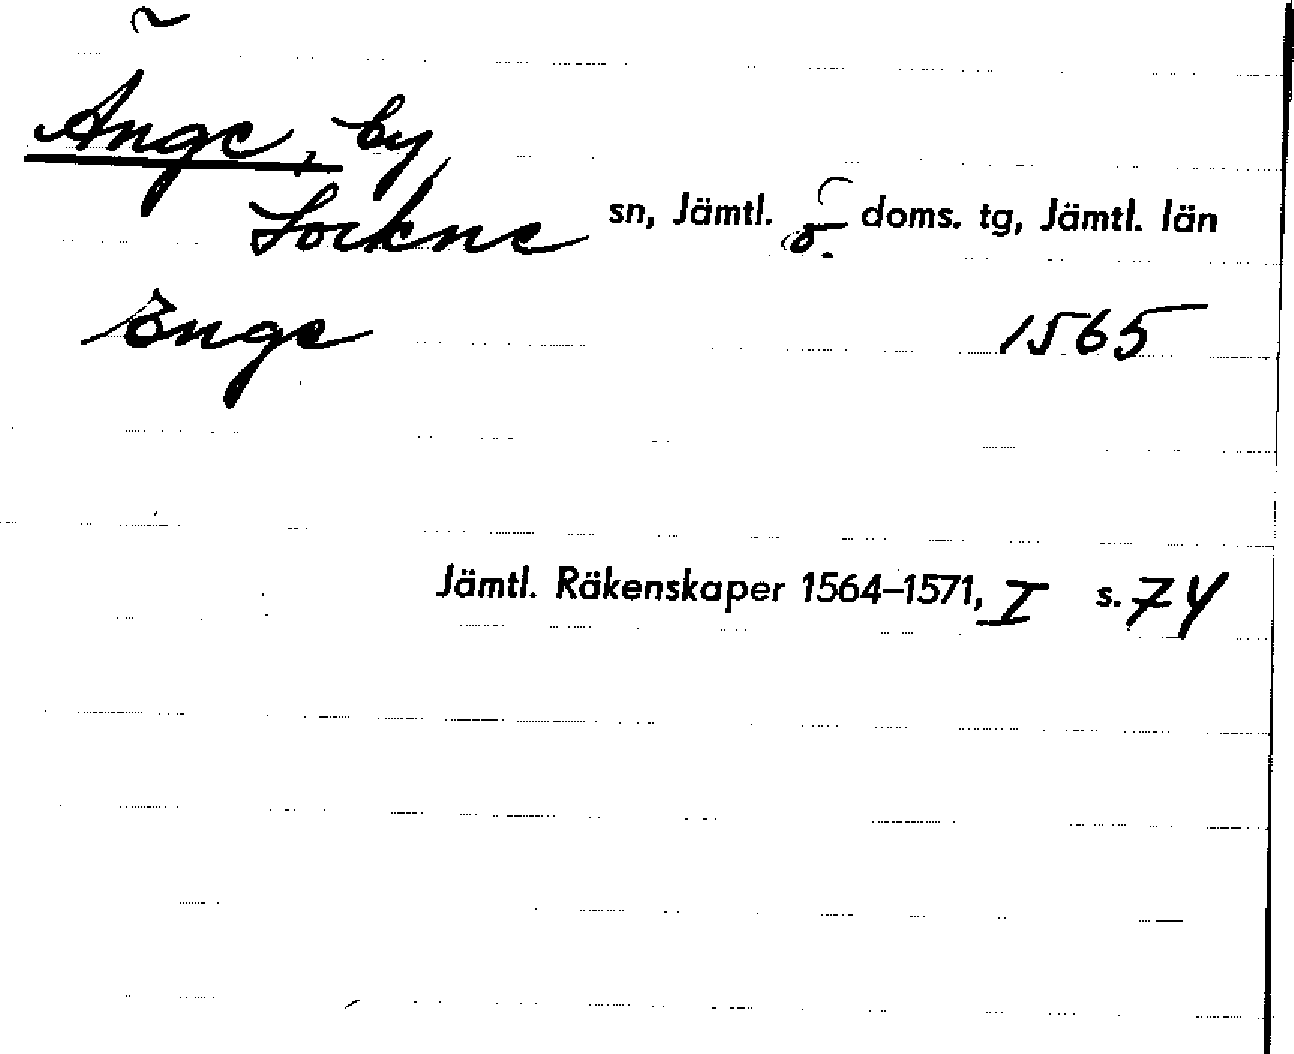 Änge, by
Lockne sn, Jämtl. ö. doms. tg, Jämtl. län
Enge 1565
Jämtl. Räkenskaper 1564–1571, I s. 74